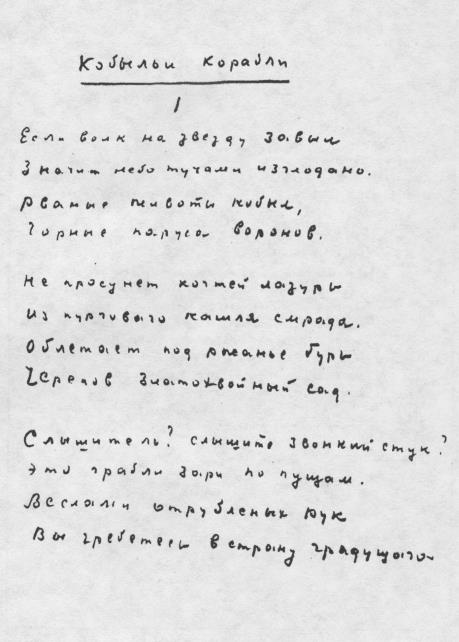 Кобыльи корабли
1
Если волк на звезду завыл
Значит небо тучами изглодано.
Рваные животы кобыл,
Чорные паруса воронов.
Не просунет когтей лазурь
Из пургового кашля смрада.
Облетает под ржанье бурь
Черепов златохвойный сад.
Слышитель? слышите звонкий стук?
Это грабли зари по пущам.
Веслами отрубленых рук
Вы гребетесь в страну грядущаго